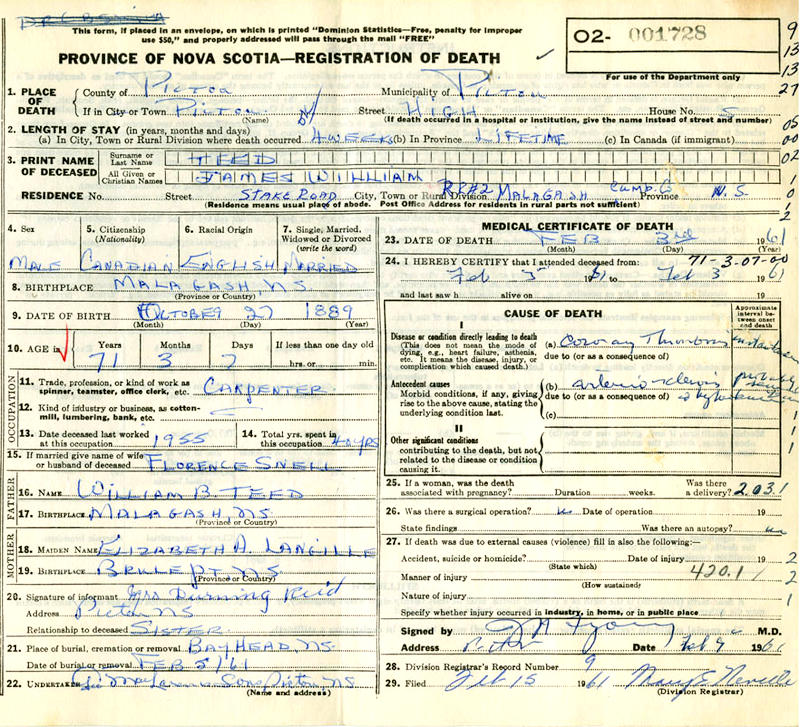 This form, if placed in an envelope, on which is printed "Dominion Statistics—Free, penalty for improper
use $50," and properly addressed will pass through the mail "FREE"
PROVINCE OF NOVA SCOTIA—REGISTRATION OF DEATH
O2- 001728
For use of the Department only
9
13
13
27
05
00
02
1
0
1
2
1. PLACE OF DEATH
County of Pictou Municipality of Pictou
If in City or Town Pictou Street HIGH House No. 5
(Name) (If death occurred in a hospital or institution, give the name instead of street and number)
2. LENGTH OF STAY (in years, months and days)
(a) In City, Town or Rural Division where death occurred 4 WEEKS (b) In Province LIFETIME (c) In Canada (if immigrant)
3. PRINT NAME OF DECEASED
Surname or Last Name TEED
All Given or Christian Names JAMES WILLIAM
RESIDENCE No. Street STAKE ROAD City, Town or Rural Division RR#2 MALAGASH Cumb. Co Province N.S.
(Residence means usual place of abode. Post Office Address for residents in rural parts not sufficient)
4. Sex
5. Citizenship (Nationality)
6. Racial Origin
7. Single, Married, Widowed or Divorced (write the word)
MALE CANADIAN ENGLISH MARRIED
8. BIRTHPLACE MALAGASH NS
(Province or Country)
9. DATE OF BIRTH OCTOBER 27 1889
(Month) (Day) (Year)
10. AGE in Years Months Days If less than one day old
71 3 7 hrs. or min.
OCCUPATION
11. Trade, profession, or kind of work as spinner, teamster, office clerk, etc. CARPENTER
12. Kind of industry or business, as cotton-mill, lumbering, bank, etc.
13. Date deceased last worked at this occupation 1955
14. Total yrs. spent in this occupation 40 YRS
15. If married give name of wife or husband of deceased FLORENCE SNELL
FATHER
16. Name WILLIAM B. TEED
17. Birthplace MALAGASH, NS
(Province or Country)
MOTHER
18. MAIDEN NAME ELIZABETH A. LANGILLE
19. BIRTHPLACE BRULE PT NS
(Province or Country)
20. Signature of informant Mrs Durning Reid
Address PICTOU NS
Relationship to deceased SISTER
21. Place of burial, cremation or removal BAYHEAD, NS
Date of burial or removal FEB 5/61
22. UNDERTAKER Sons Pictou NS
(Name and address)
MEDICAL CERTIFICATE OF DEATH
23. DATE OF DEATH FEB 3rd 1961
(Month) (Day)
71-3-07-00
24. I HEREBY CERTIFY that I attended deceased from:
Feb 3 1961 to Feb 3 1961
and last saw h alive on 19
CAUSE OF DEATH
Approximate interval between onset and death
I
Disease or condition directly leading to death
(This does not mean the mode of dying, e.g., heart failure, asthenia, etc. It means the disease, injury, or complication which caused death.)
(a) Coronary Thrombosis
due to (or as a consequence of)
Antecedent causes
Morbid conditions, if any, giving rise to the above cause, stating the underlying condition last.
(b) arterio-sclerosis
due to (or as a consequence of)
(c)
II
Other significant conditions
contributing to the death, but not related to the disease or condition causing it.
1
1
1
25. If a woman, was the death associated with pregnancy? Duration weeks. Was there a delivery? 2031
26. Was there a surgical operation? no Date of operation 19
State findings Was there an autopsy? no
27. If death was due to external causes (violence) fill in also the following:—
Accident, suicide or homicide? Date of injury 19 2
(State which)
420.1
Manner of injury 2
(How sustained)
Nature of injury 1
Specify whether injury occurred in industry, in home, or in public place
Signed by M.D.
Address Pictou Date Feb 9 1961
28. Division Registrar's Record Number 9
29. Filed Feb 15 1961 Mary E. Neville
(Division Registrar)